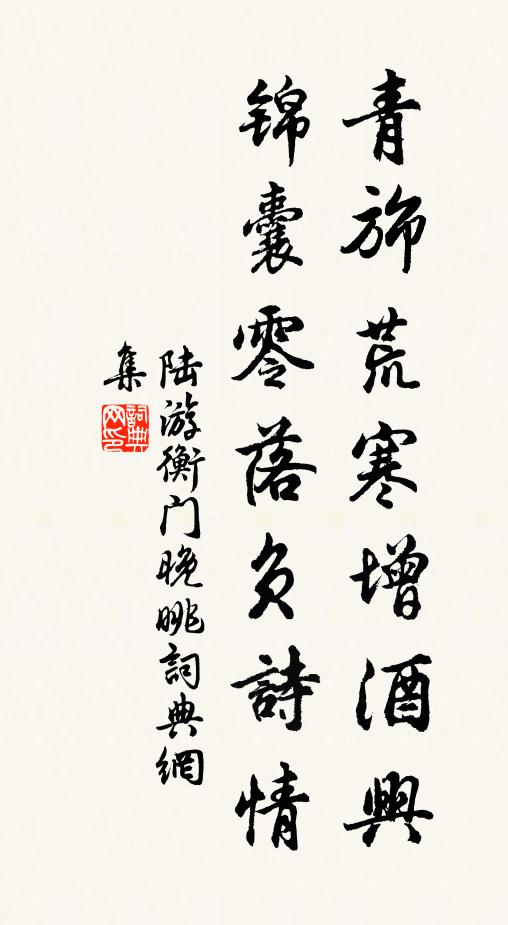 青旆荒寒增酒興
锦囊零落负詩情
陆游衡门晚眺詞典網
集
詞典网印